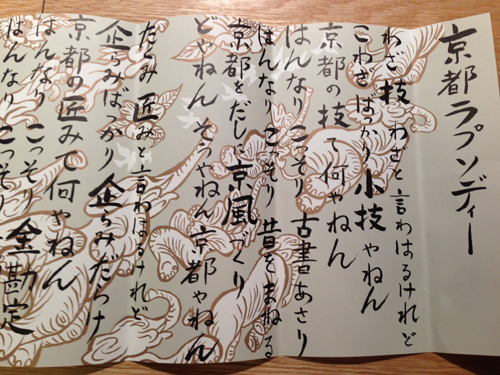 京都ラプソディー
わざ技とわざと言わはるけれど
こわざばっかり小技やねん
京都の技て何やねん
はんなりこっそり古書あさり
はんなりこっそり昔をまねる
京都をだしに京風づくり
どやねんそうやねん京都やねん
たくみ匠みと言わはるけれど
企らみばっかり企らみだらけ
京都の匠みて何やねん
はんなりこっそり金勘定
はんなりこっそり